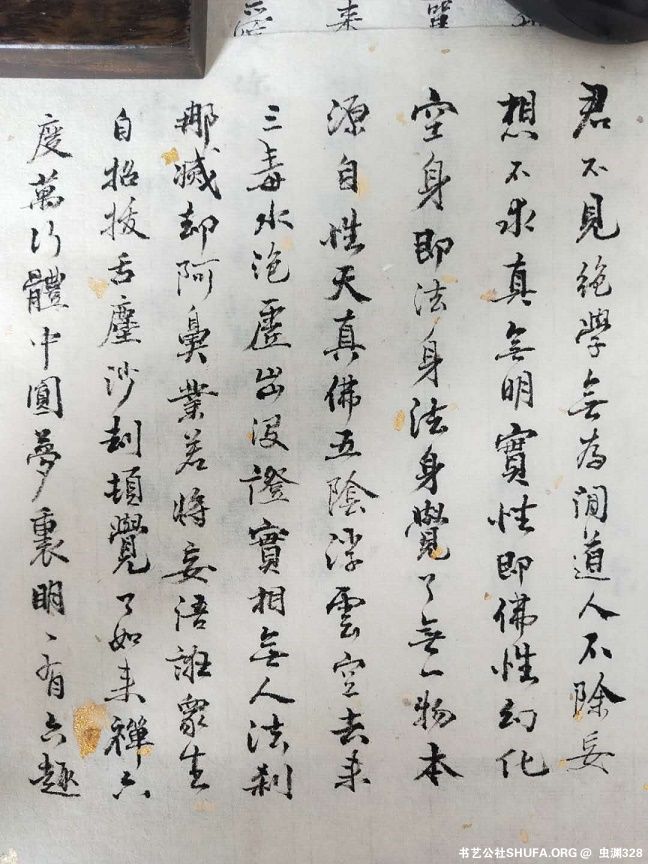 君不見絕學無為閒道人不除妄
想不求真無明實性即佛性幻化
空身即法身法身覺了無一物本
源自性天真佛五陰浮雲空去來
三毒水泡虛出沒證實相無人法刹
那滅却阿鼻業若將妄語誑眾生
自招拔舌塵沙劫頓覺了如来禪六
度萬行體中圓夢裏明〻有六趣
书艺公社SHUFA.ORG @ 虫渊328